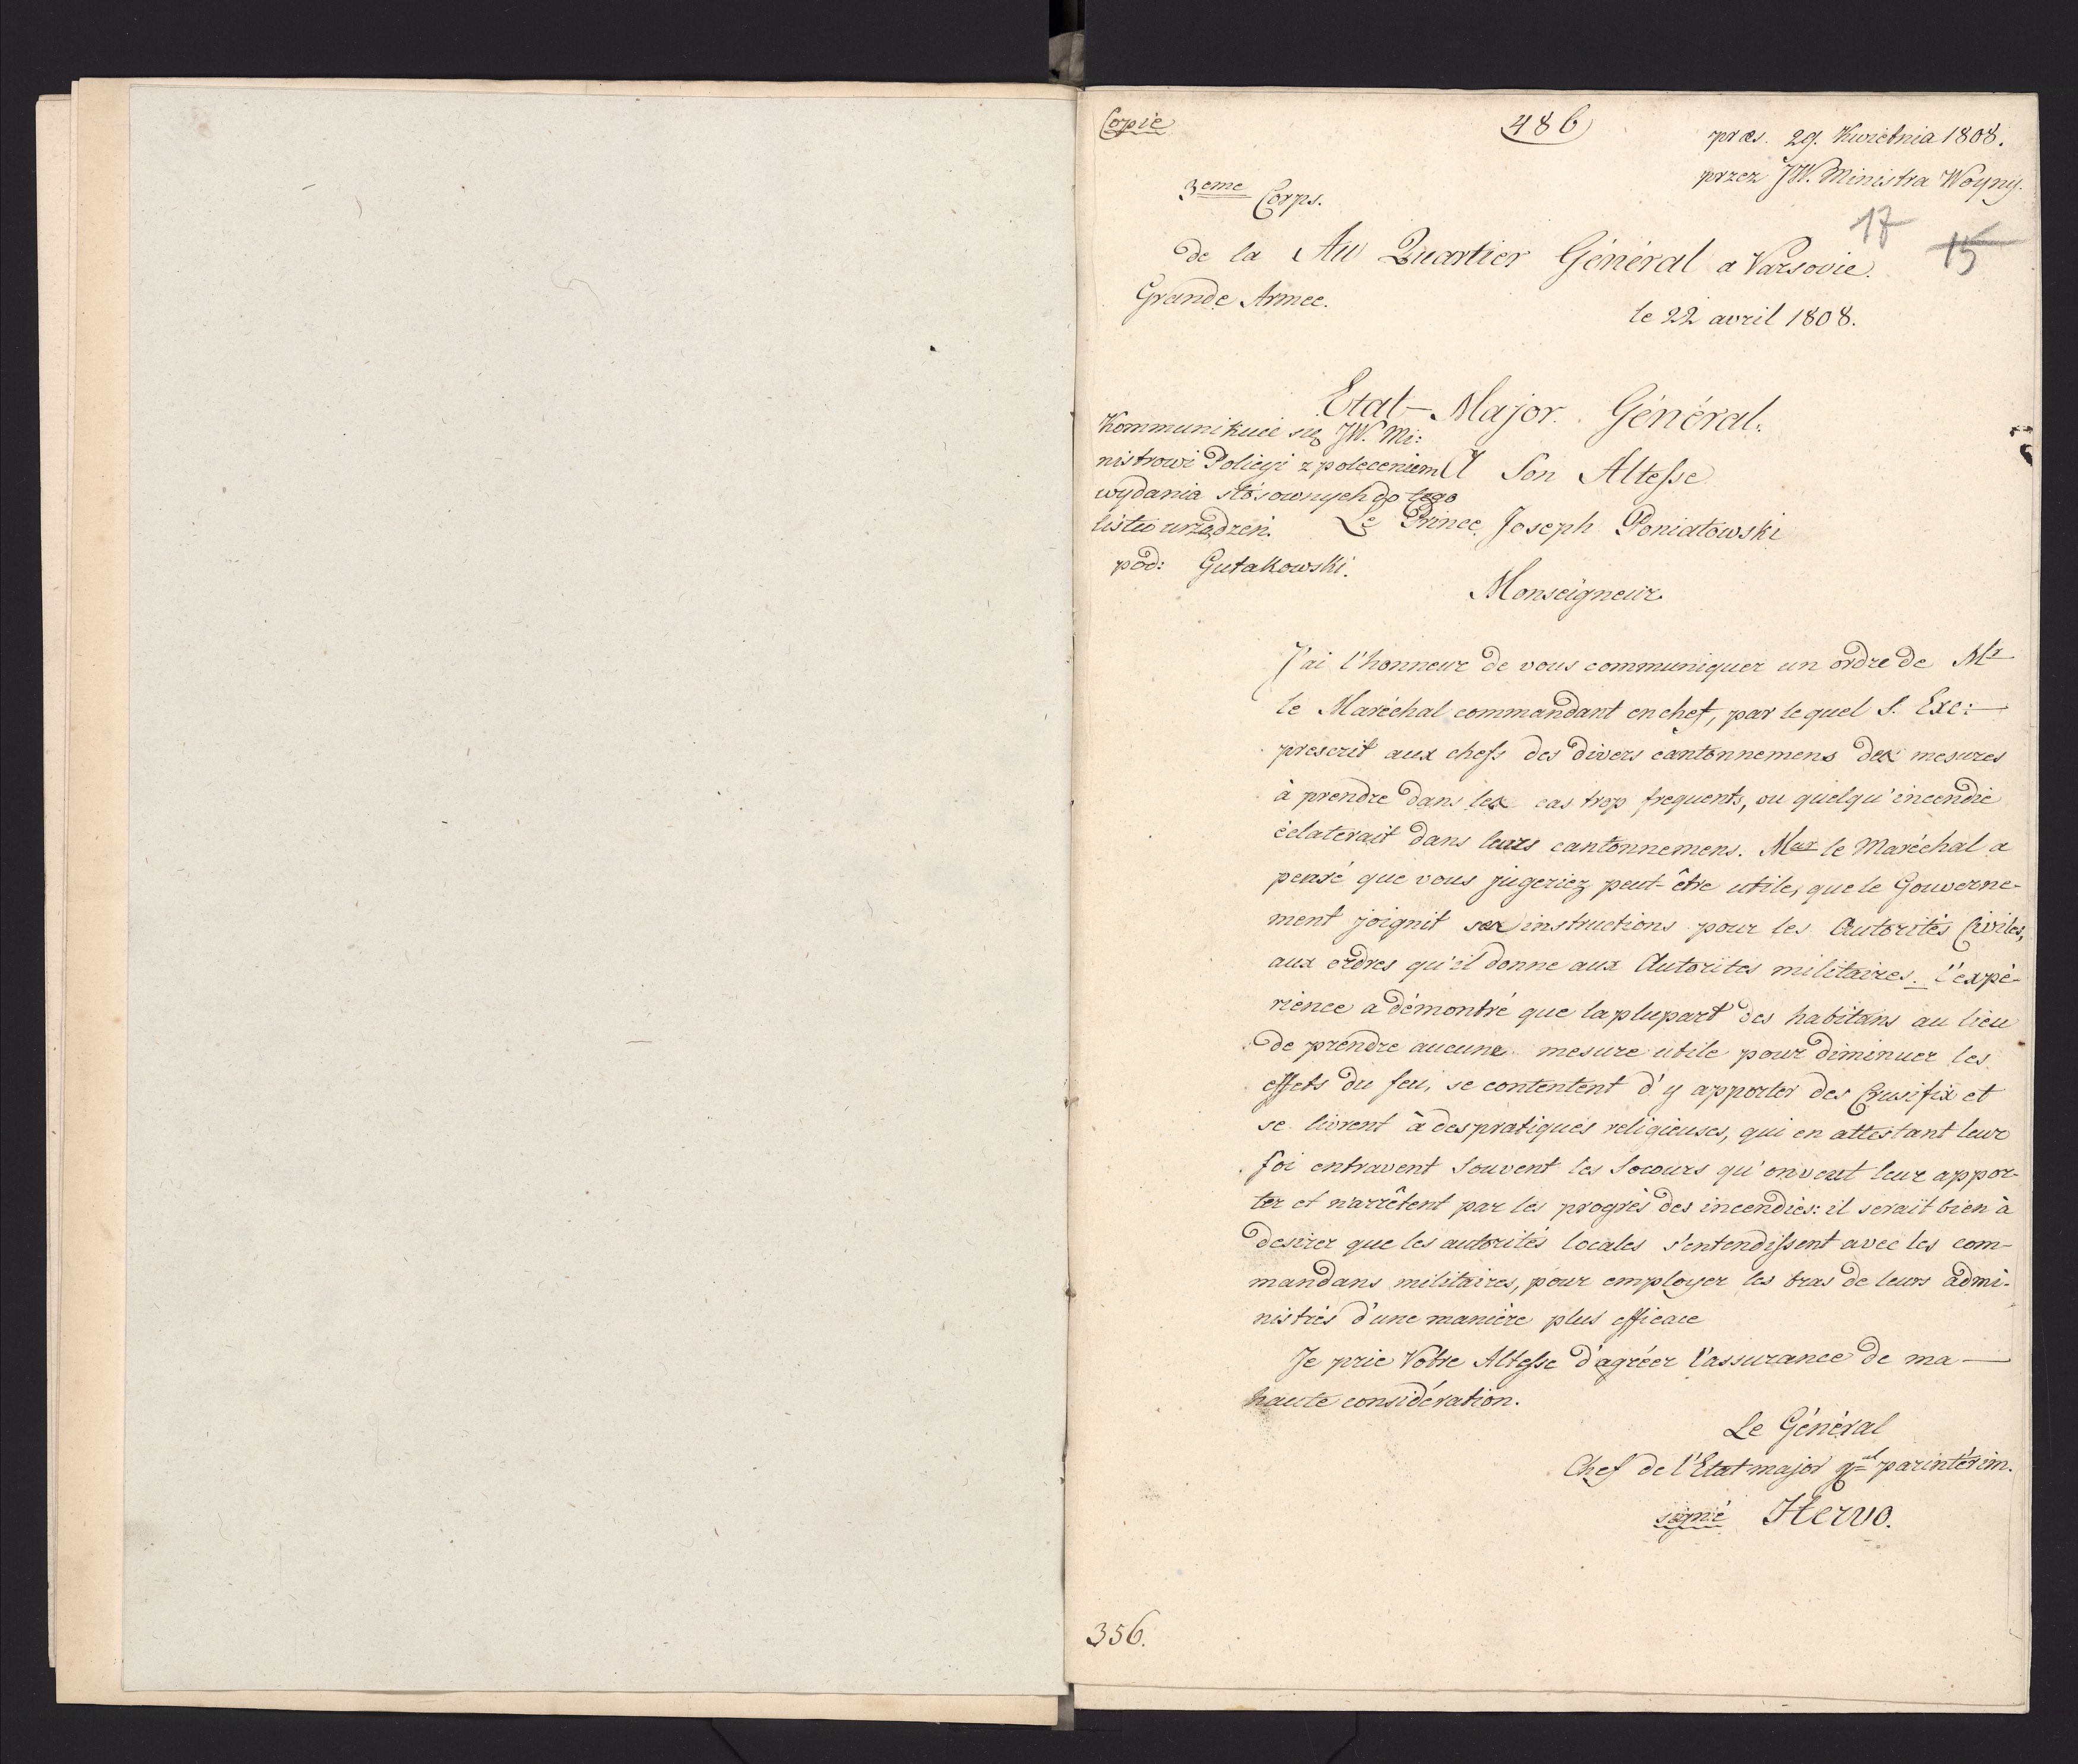 Copie
486
præs. 29. Kwietnia 1808.
przez JW. Ministra Woyny.
3eme Corps.
17
15
de la Au Quartier Général a Varsovie.
Grande Armee.
le 22 avril 1808.
Etat-Major Général.
Kommunikuie się JW. Mi:
nistrowi Policyi z poleceniem
wydania stósownych do tego
listu urządzeń.
pod: Gutakowski.
A Son Altesse
Le Prince Joseph Poniatowski
Monseigneur
J'ai l'honneur de vous communiquer un ordre de Mr
le Maréchal commandant en chef, par lequel S. Exc:
prescrit aux chefs des divers cantonnemens des mesures
à prendre dans les cas trop frequents, ou quelqu'incendie
éclaterait dans leurs cantonnemens. Mur le Maréchal a
pensé que vous jugeriez peut-être utile, que le Gouverne-
ment joignit ses instructions pour les Autorités Civiles,
aux ordres qu'il donne aux Autorites militaires. l'expé-
rience a démontré que la plupart des habitans au lieu
de prendre aucune mesure utile pour diminuer les
effets du feu, se contentent d'y apporter des Crusifix et
se livrent à des pratiques religieuses, qui en attestant leur
foi entravent souvent les Secours qu'on veut leur appor-
ter et n'arrêtent par les progrès des incendies: il serait bien à
desirer que les autorités locales s'entendissent avec les com-
mandans militaires, pour employer les bras de leurs admi-
nistrés d'une manière plus efficace
Je prie Votre Altesse d'agréer l'assurance de ma
haute considération.
Le Général
Chef de l'Etat-major gal par intérim.
signé Hervo.
356.